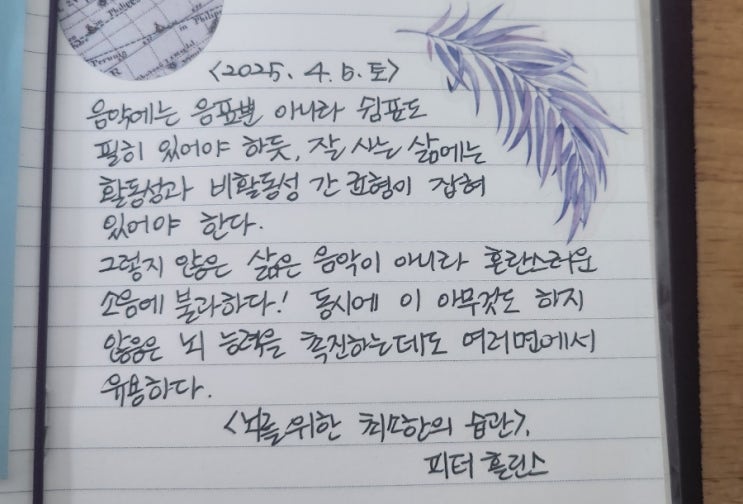 <2025. 4. 5. 토>
음악에는 음표뿐 아니라 쉼표도
필히 있어야 하듯, 잘 사는 삶에는
활동성과 비활동성 간 균형이 잡혀
있어야 한다.
그렇지 않은 삶은 음악이 아니라 혼란스러운
소음에 불과하다! 동시에 이 아무것도 하지
않음은 뇌 능력을 촉진하는데도 여러면에서
유용하다.
<뇌를 위한 최소한의 습관>,
피터 홀린스